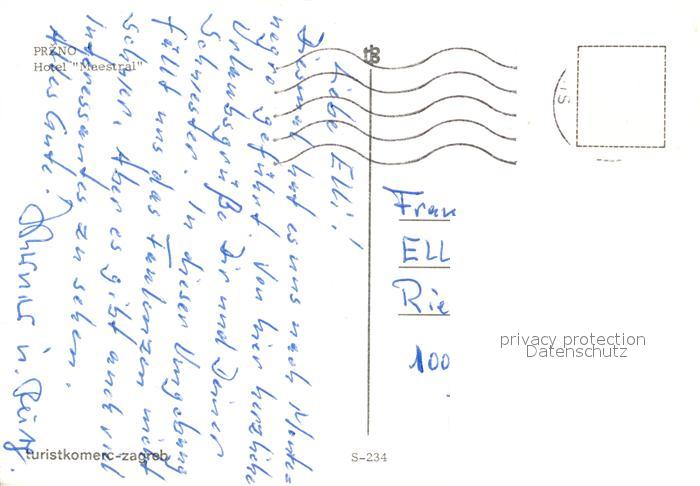 PRŽNO
Hotel "Maestral"
Liebe Elli!
Diesmal hat es uns nach Monte-
negro geführt. Von hier herzliche
Urlaubsgrüße Dir und Deiner
Schwester. In dieser Umgebung
fällt uns das Faulenzen nicht
schwer. Aber es gibt auch viel
Interessantes zu sehen.
Alles Gute!
turistkomerc-zagreb
S-234
Frau
ELL
Rie
100
privacy protection
Datenschutz